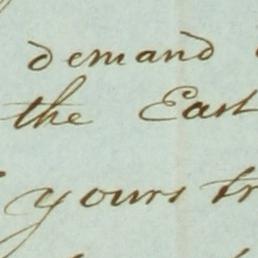 demand
the East
yours tr